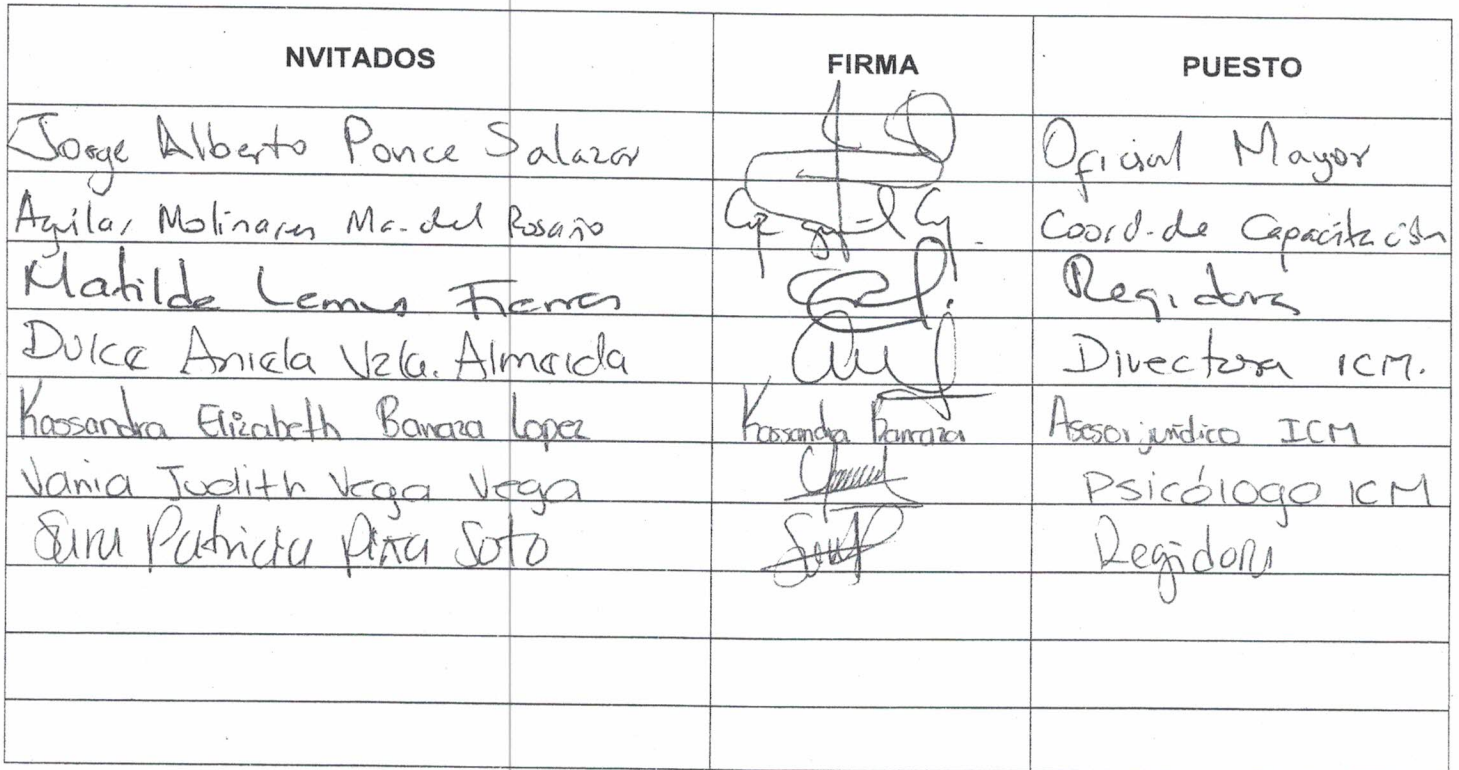 NVITADOS FIRMA PUESTO
Jorge Alberto Ponce Salazar Oficial Mayor
Aguilar Molinares Ma. del Rosario Coord. de Capacitación
Matilde Lemus Fierros Regidora
Dulce Aniela Vzla. Almeida Directora ICM.
Kassandra Elizabeth Barraza Lopez Kassandra Barraza Asesor jurídico ICM
Vania Judith Vega Vega Psicólogo ICM
Sara Patricia Piña Soto Regidora